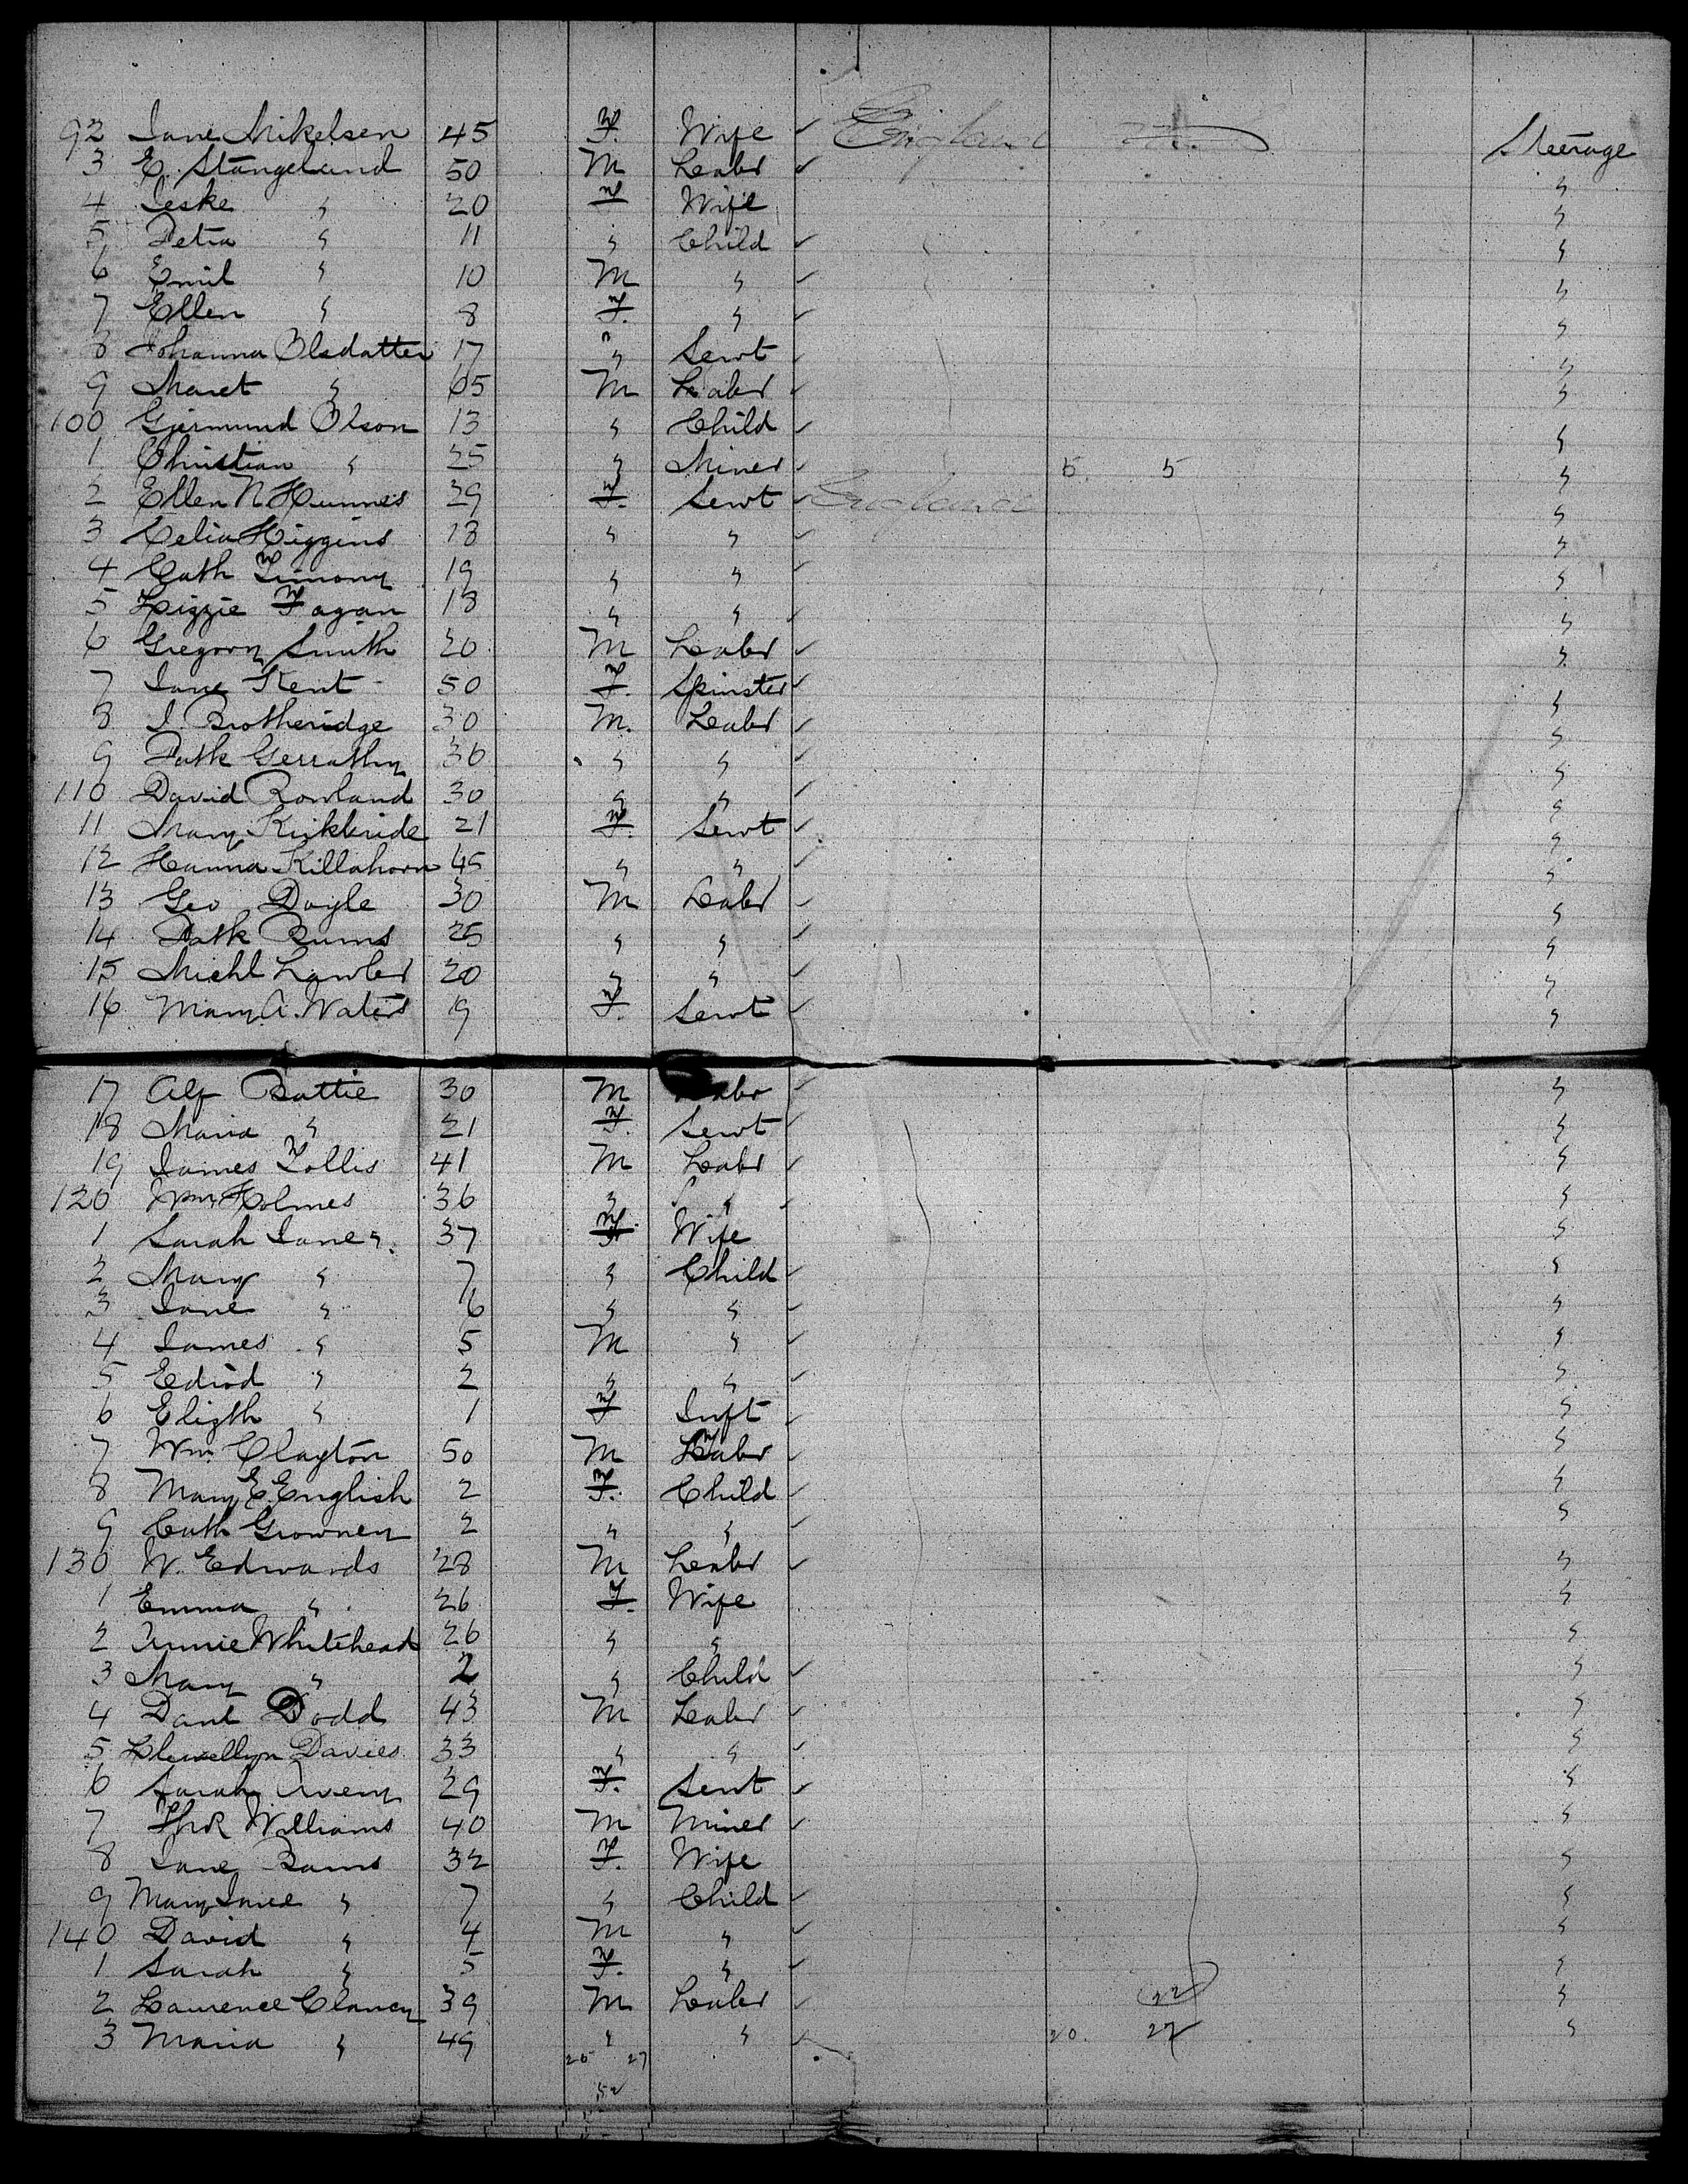 92 Jane Mikelsen 45 F. Wife ✓ England Steerage
3 E. Stangeland 50 M Labr ✓ "
4 Jeske " 20 F Wife "
5 Petra " 11 " Child ✓ "
6 Emil " 10 M " ✓ "
7 Ellen " 8 F. " ✓ "
8 Johanna Olsdatter 17 " Servt ✓ "
9 Maret " 65 M Labr ✓ "
100 Gjermund Olson 13 " Child ✓ "
1 Christian " 25 " Miner ✓ 5. 5 "
2 Ellen N Hunnes 29 F. Servt ✓ "
3 Celia Higgins 18 " " ✓ "
4 Cath Timony 19 " " ✓ "
5 Lizzie Fagan 18 " " ✓ "
6 Gregory Smith 20 M Labr ✓ "
7 Jane Kent 50 F. Spinster ✓ "
8 J. Brotheridge 30 M. Labr ✓ "
9 Patk Gerrathy 36 " " ✓ "
110 David Rowland 30 " " ✓ "
11 Mary Kirkbride 21 F. Servt ✓ "
12 Hanna Killahorn 45 " " ✓ "
13 Geo Doyle 30 M Labr ✓ "
14 Patk Burns 25 " " ✓ "
15 Michl Lawler 20 " " ✓ "
16 Mary A. Waters 19 F. Servt ✓ "
17 Alf Battie 30 M Labr ✓ "
18 Maria " 21 F. Servt ✓ "
19 James Follis 41 M Labr ✓ "
120 Wm Holmes 36 " " ✓ "
1 Sarah Jane " 37 F. Wife "
2 Mary " 7 " Child ✓ "
3 Jane " 6 " " ✓ "
4 James " 5 M " ✓ "
5 Edwd " 2 " " ✓ "
6 Elizth " 1 F Inft ✓ "
7 Wm. Clayton 50 M Labr ✓ "
8 Mary E. English 2 F. Child ✓ "
9 Cath Growney 2 " " ✓ "
130 W. Edwards 28 M Labr ✓ "
1 Emma " 26 F. Wife "
2 Annie Whitehead 26 " " "
3 Mary " 2 " Child ✓ "
4 Danl Dodd 43 M Labr ✓ "
5 Llewellyn Davies 33 " " ✓ "
6 Sarah Avery 29 F. Servt ✓ "
7 Williams 40 M Miner ✓ "
8 Jane 32 F. Wife "
9 Mary Jane " 7 " Child ✓ "
140 David " 4 M " ✓ "
1 Sarah " 5 F. " ✓ "
2 Laurence Clancy 39 M Labr ✓ 22 "
3 Maria " 49 " " ✓ 20. 27 "
25 27
52